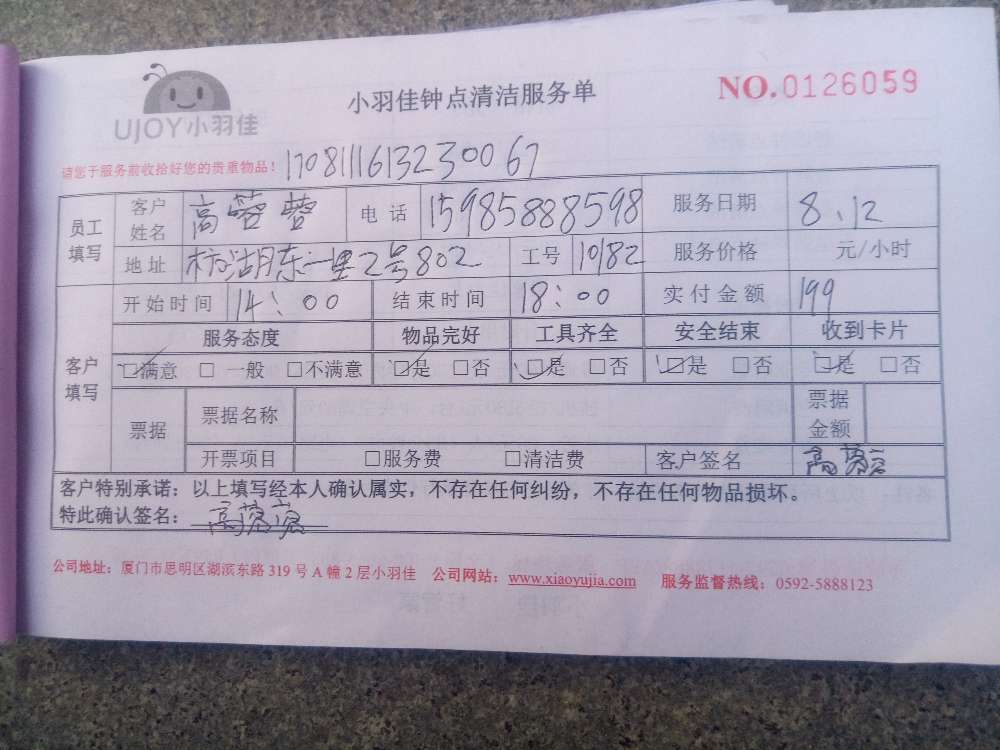 UJOY小羽佳
小羽佳钟点清洁服务单
NO.0126059
请您于服务前收拾好您的贵重物品! 1708111613230067
员工填写 客户姓名 高蓉蓉 电话 15985888598 服务日期 8、12
地址 东一里2号802 工号 10182 服务价格 元/小时
客户填写 开始时间 14:00 结束时间 18:00 实付金额 199
服务态度 物品完好 工具齐全 安全结束 收到卡片
☑满意 □ 一般 □不满意 ☑是 □否 ☑是 □否 ☑是 □否 ☑是 □否
票据 票据名称 票据金额
开票项目 □服务费 □清洁费 客户签名 高蓉蓉
客户特别承诺：以上填写经本人确认属实，不存在任何纠纷，不存在任何物品损坏。
特此确认签名： 高蓉蓉
公司地址：厦门市思明区湖滨东路 319 号 A 幢 2 层小羽佳 公司网站：www.xiaoyujia.com 服务监督热线：0592-5888123